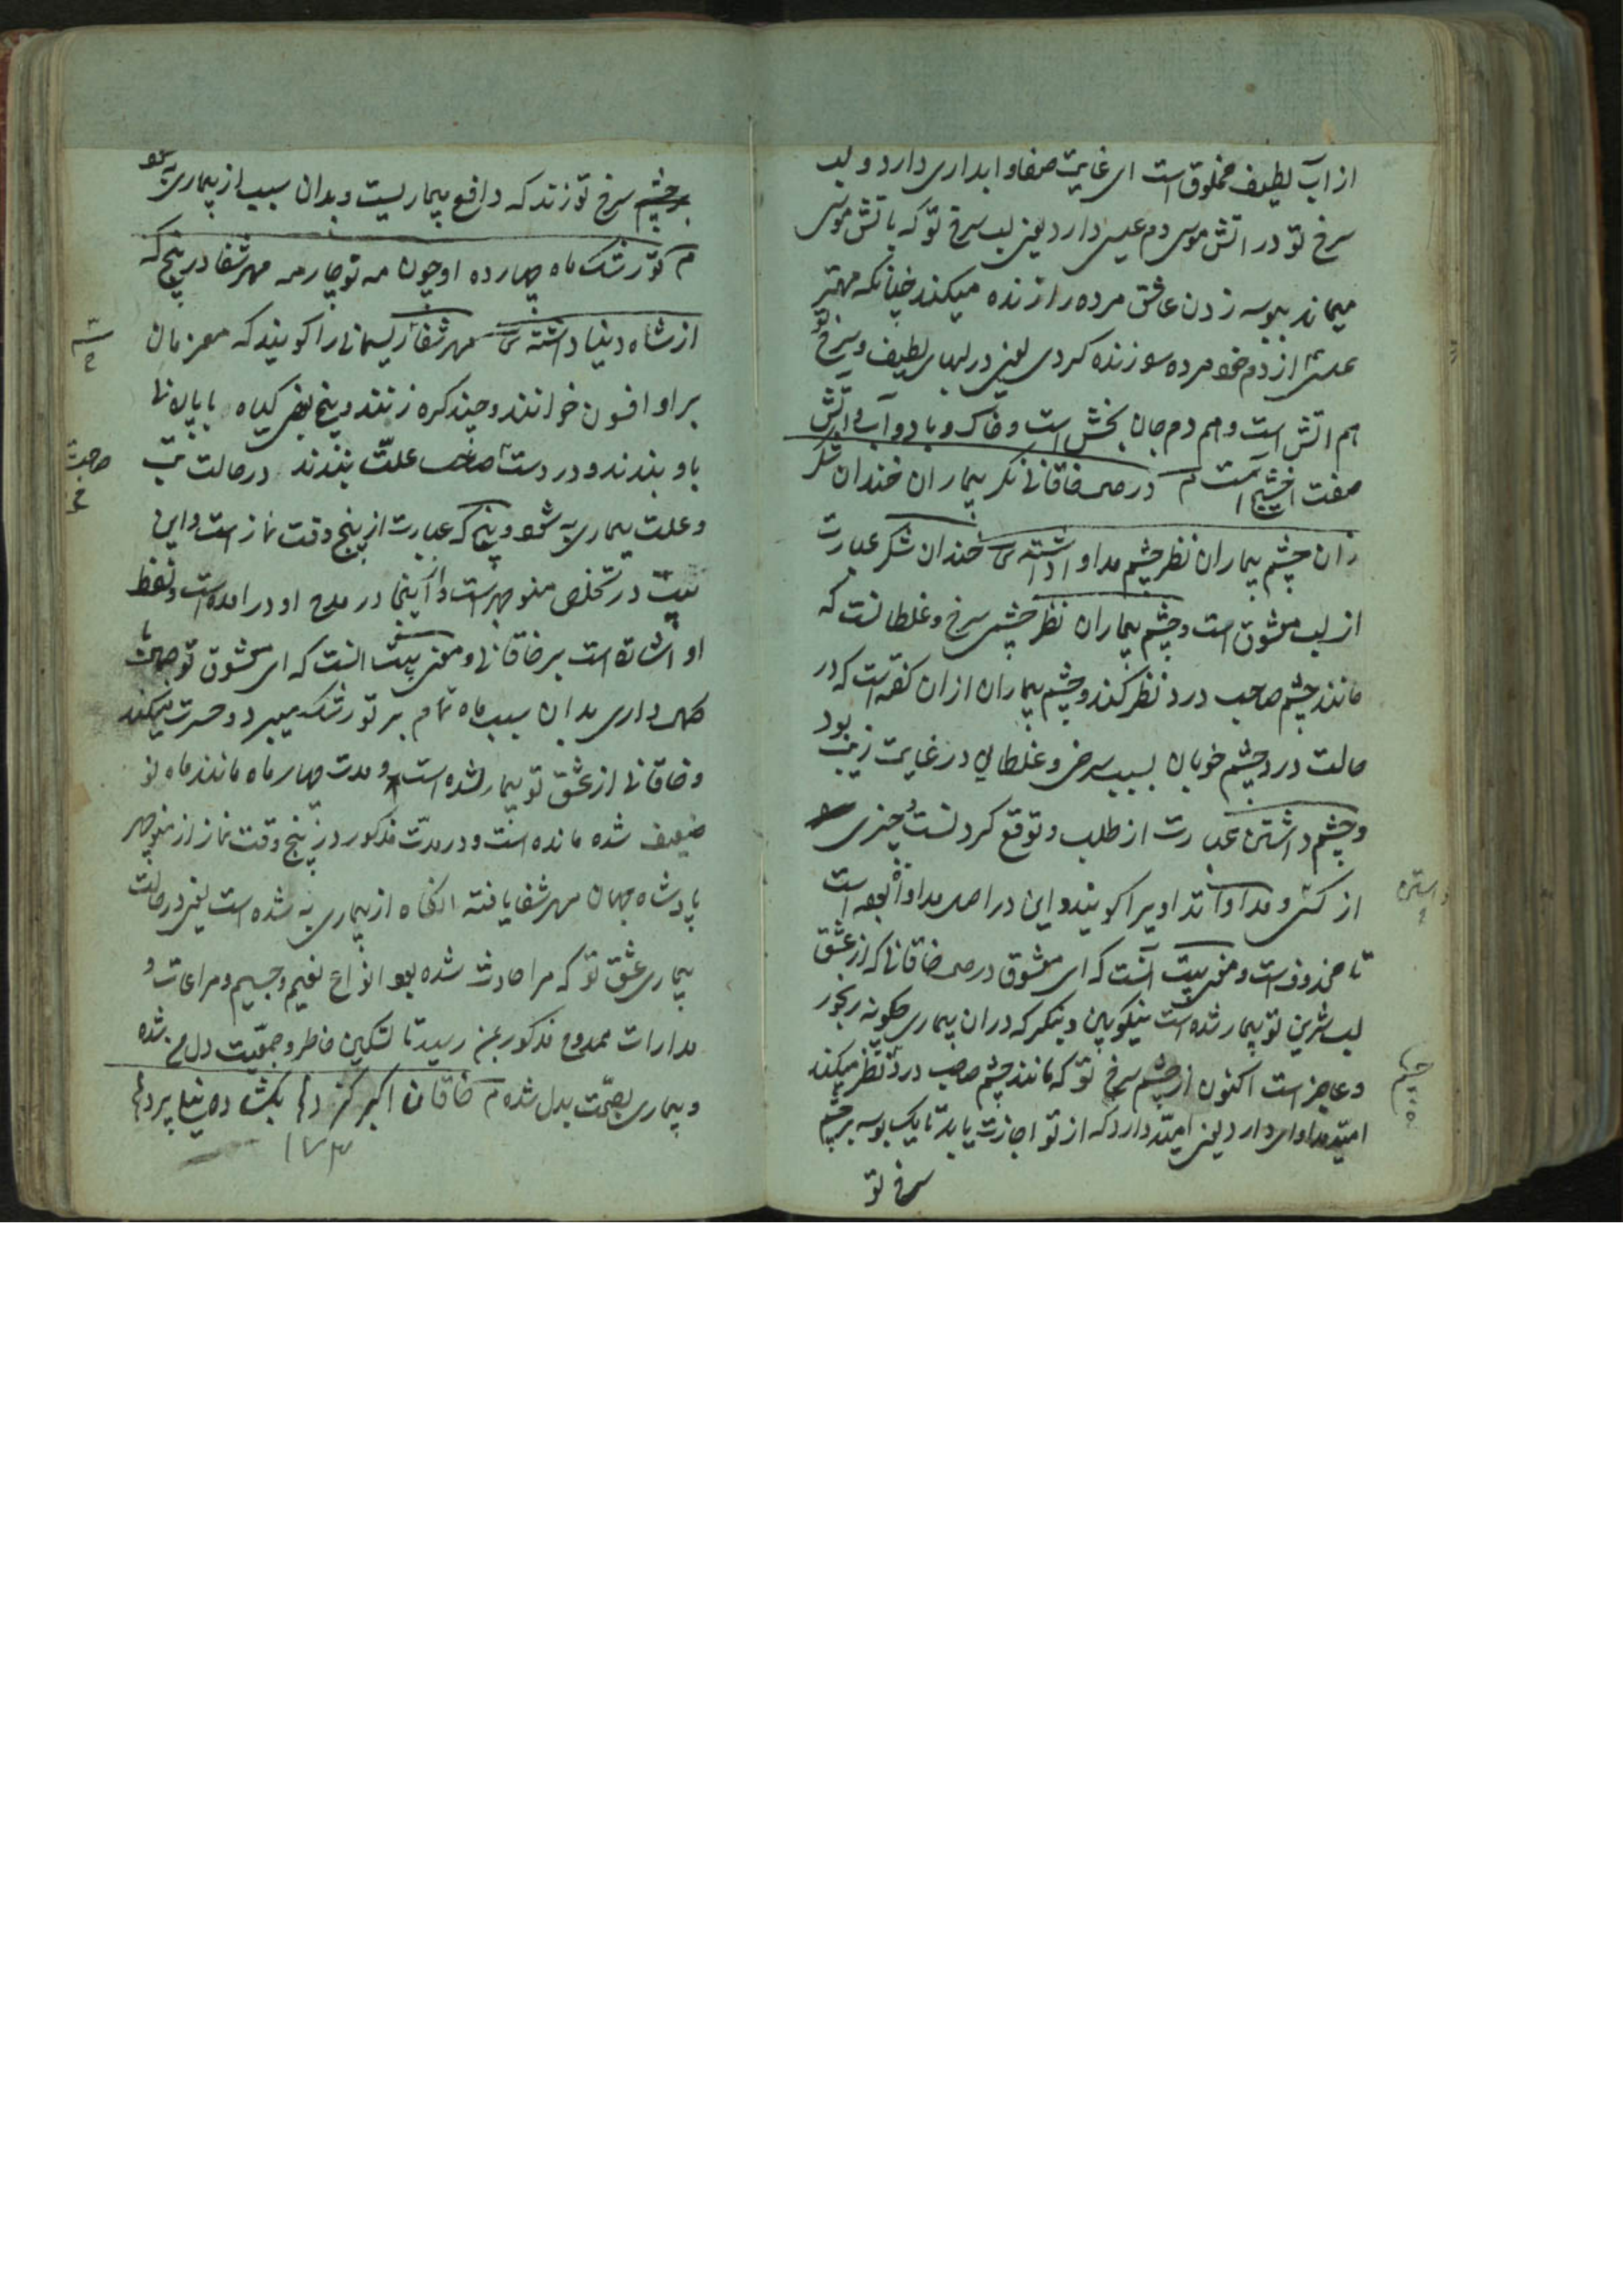 از آب لطیف مخلوق است ای غایت صفا و ابداری دارد و لب
سرخ تو در اتش موسی دم عیسی دارد یعنی لب سرخ تو که باتش موسی
میماند ببوسه زدن عاشق مرده را زنده میکند چنانکه مهتر
عیسی از دم خود مرده را زنده کردی یعنی در لبهای لطیف و سرخ تو
هم اتش است و هم دم جان بخش است و خاک و باد و آب و اتش
صفت است م در خاقانی نکر بیماران خندان شکر
زان چشم بیماران نظر چشم مداوا داشته ش خندان شکر عبارت
از لب معشوق است و چشم بیماران نظر چشمی سرخ و غلطانست که
مانند چشم صاحب درد نظر کند و چشم بیماران ازان کفته است که در
حالت درد چشم خوبان بسبب سرخی و غلطانی در غایت زیب بود
و چشم داشتن عبارت از طلب و توقع کردنست چیزی
از کسی و مداوا تداویرا کویند و این در اصل مداواة بوده است
تا محذوف است و معنی بیت آنست که ای معشوق در خاقانی که از عشق
لب شرین تو بیمار شده است نیکو ببین و بنکر که دران بیماری چکونه رنجور
و عاجز است اکنون از چشم سرخ تو که مانند چشم صاحب درد نظر میکند
امید مداوای دارد یعنی امید دارد که از تو اجازت یابد تا یک بوسه بر چشم
سرخ تو
داشتن
چشم
بر چشم سرخ تو زند که دافع بیماریست و بدان سبب از بیماری به شود
م کو رشک ماه چهارده او چون مه تو چار مه مهر شفا در پنج که
از شاه دنیا داشته ش مهر شفا ریسمانی را کویند که معزمان
بر او افسون خوانند و چند کره زنند و بیخ بعضی کیاه با
باو بندند و در دست صاحب علت بندند در حالت تب
و علت بیماری به شود و پنج که عبارت از پنج وقت نماز است و این
بیت در تخلص منوچهر است و ابیات در مدح او در امده است و لفظ
او اشاره است بر خاقانی و معنی بیت انست که ای معشوق تو
داری بدان سبب ماه تمام بر تو رشک میبرد و حسرت میکند
و خاقانی از عشق تو بیمار شده است و مدت چهار ماه مانند ماه نو
ضعیف شده مانده است و در مدت مذکور در پنج وقت نماز از منوچهر
پادشاه جهان مهر شفا یافته انکاه از بیماری به شده است یعنی در حالت
بیماری عشق تو که مرا حادث شده بود انواع نعیم و جسیم و مراعات و
مدارات ممدوح مذکور بمن رسید تا تسکین خاطر و جمعیت دل من شده
و بیماری بصحت بدل شده م خاقان اکبر کز
صاحب
۱۷۳